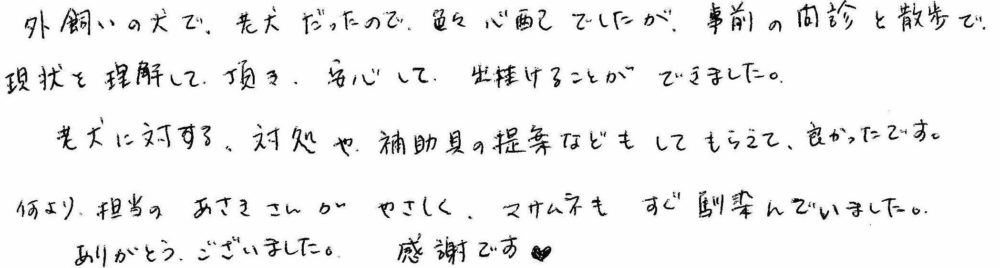 外飼いの犬で、老犬だったので、色々心配でしたが、事前の問診と散歩で、
現状を理解して頂き、安心して出掛けることができました。
老犬に対する、対処や補助具の提案などもしてもらえて、良かったです。
何より、担当のあさきさんがやさしく、マサムネもすぐ馴染んでいました。
ありがとうございました。感謝です♥